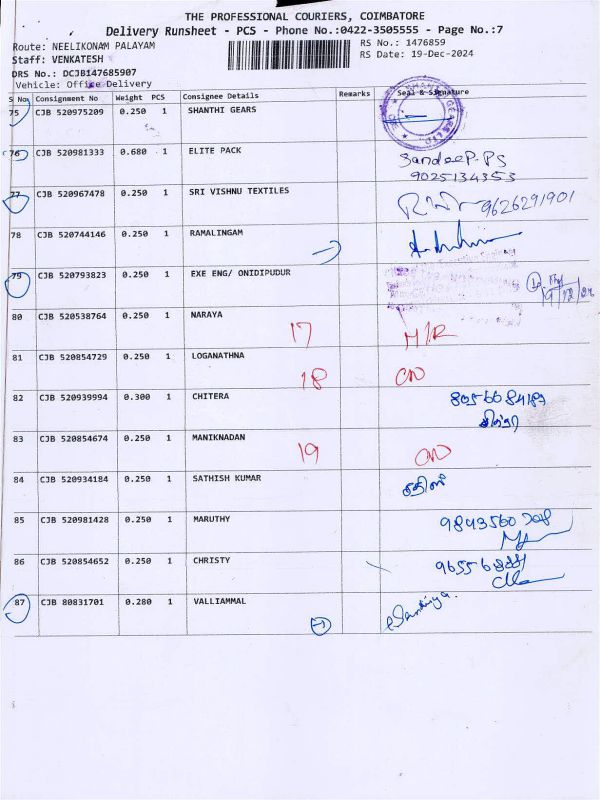 THE PROFESSIONAL COURIERS, COIMBATORE
Delivery Runsheet - PCS - Phone No.:0422-3505555 - Page No.:7
Route: NEELIKONAM PALAYAM RS No.: 1476859
Staff: VENKATESH RS Date: 19-Dec-2024
DRS No.: DCJB147685907
Vehicle: Office Delivery
S No Consignment No Weight PCS Consignee Details Remarks Seal & Signature
75 CJB 520975209 0.250 1 SHANTHI GEARS
76 CJB 520981333 0.680 1 ELITE PACK SandeeP.PS
9025134353
77 CJB 520967478 0.250 1 SRI VISHNU TEXTILES 9626291901
78 CJB 520744146 0.250 1 RAMALINGAM
79 CJB 520793823 0.250 1 EXE ENG/ ONIDIPUDUR
80 CJB 520538764 0.250 1 NARAYA 17 M/R
81 CJB 520854729 0.250 1 LOGANATHNA 18
82 CJB 520939994 0.300 1 CHITERA
83 CJB 520854674 0.250 1 MANIKNADAN 19
84 CJB 520934184 0.250 1 SATHISH KUMAR
85 CJB 520981428 0.250 1 MARUTHY
86 CJB 520854652 0.250 1 CHRISTY
87 CJB 80831701 0.280 1 VALLIAMMAL